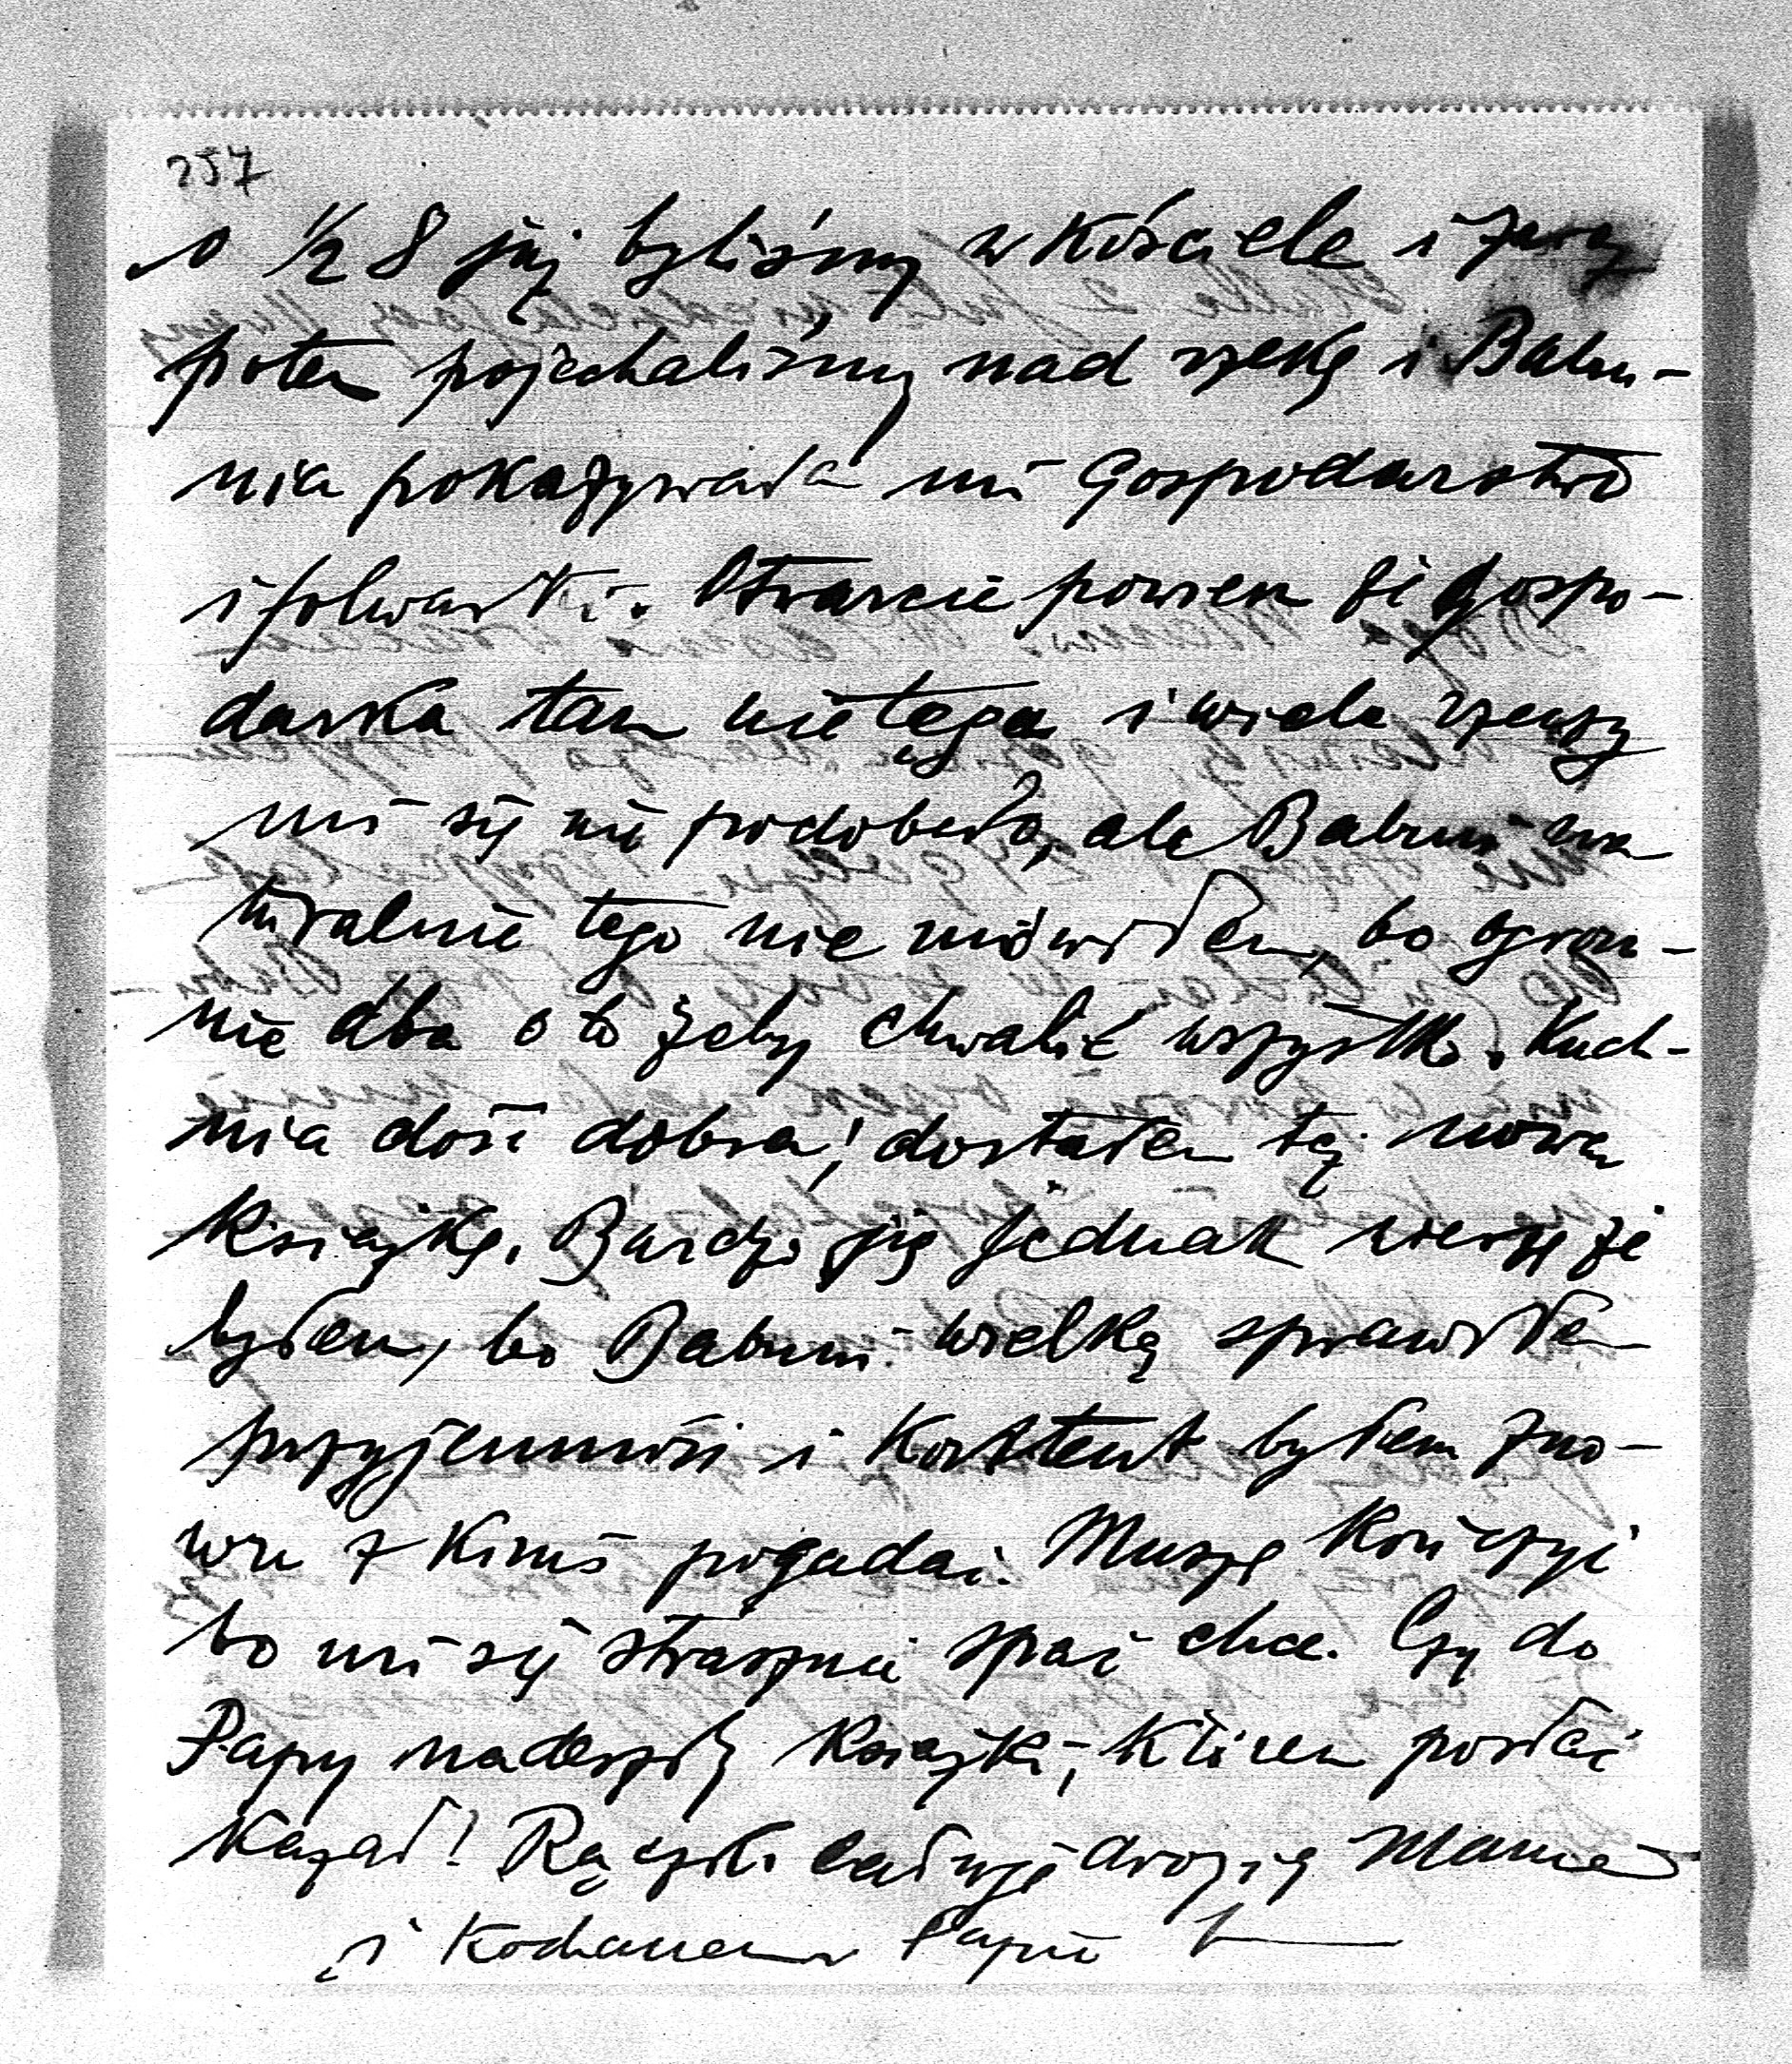 257
o ½ 8 już byliśmy w Kościele i zaraz
potem pojechaliśmy nad rzekę i Babu-
nia pokazywała mi Gospodarstwo
i folwarki. Otwarcie powiem że gospo-
darka tam nie tęga i wiele rzeczy
mi się nie podobało, ale Babuni na
turalnie tego nie mówiłem, bo ogrom-
nie dba o to żeby chwalić wszystko. Kuch-
nia dość dobra! dostałem też nową
książkę. Bardzo się jednak cieszę że
byłem, bo Babuni wielką sprawiłem
przyjemność i Kontent byłem zno-
wu z Kimś pogadać. Muszę Kończyć
bo mi się strasznie spać chce. Czy do
Papy nadeszły Książki, które posłać
Kazał! Rączki całuję drogiej Mamie
i Kochanemu Papie